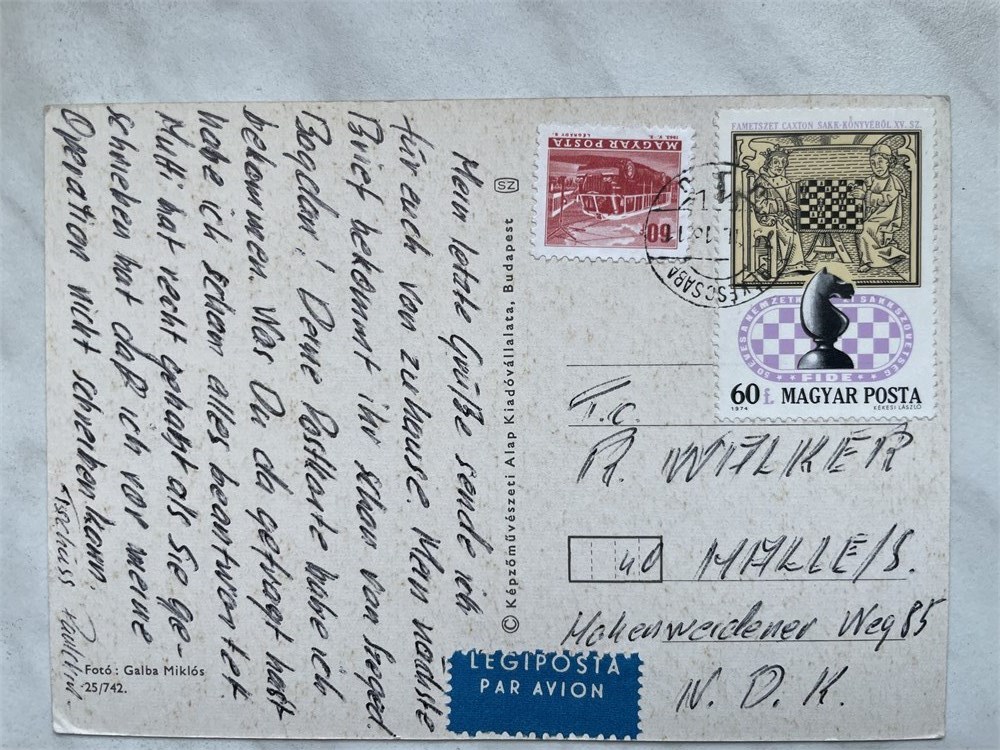 Mein letzte Grüße sende ich
für euch von zuhause. Mein nächste
Brief bekommt ihr schon von Szeged.
Bogdan! Deine Postkarte habe ich
bekommen. Was Du da gefragt hast
habe ich schon alles beantwortet.
Mutti hat recht gehabt als Sie ge-
schrieben hat daß ich vor meine
Operation nicht schreiben kann.
Tschüss
Fotó: Galba Miklós
25/742.
© Képzőművészeti Alap Kiadóvállalata, Budapest
SZ
MAGYAR POSTA
60f
FAMETSZET CAXTON SAKK-KÖNYVÉBŐL XV. SZ.
50 ÉVES A NEMZETKÖZI SAKKSZÖVETSÉG
FIDE
60f. MAGYAR POSTA
1974 KÉKESI LÁSZLÓ
BÉKÉSCSABA
T.c.
A. WALKER
40 HALLE/S.
Hohenweidener Weg 85
N. D. K.
LÉGIPOSTA
PAR AVION